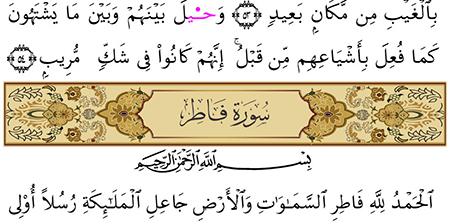 بِٱلْغَيْبِ مِن مَّكَانٍۭ بَعِيدٍ ﴿٥٣﴾ وَحِيلَ بَيْنَهُمْ وَبَيْنَ مَا يَشْتَهُونَ
كَمَا فُعِلَ بِأَشْيَاعِهِم مِّن قَبْلُ ۚ إِنَّهُمْ كَانُوا۟ فِى شَكٍّ مُّرِيبٍۭ ﴿٥٤﴾
سُورَةُ فَاطِرٍ
بِسْمِ ٱللَّهِ ٱلرَّحْمَٰنِ ٱلرَّحِيمِ
ٱلْحَمْدُ لِلَّهِ فَاطِرِ ٱلسَّمَٰوَٰتِ وَٱلْأَرْضِ جَاعِلِ ٱلْمَلَٰٓئِكَةِ رُسُلًا أُو۟لِىٓ